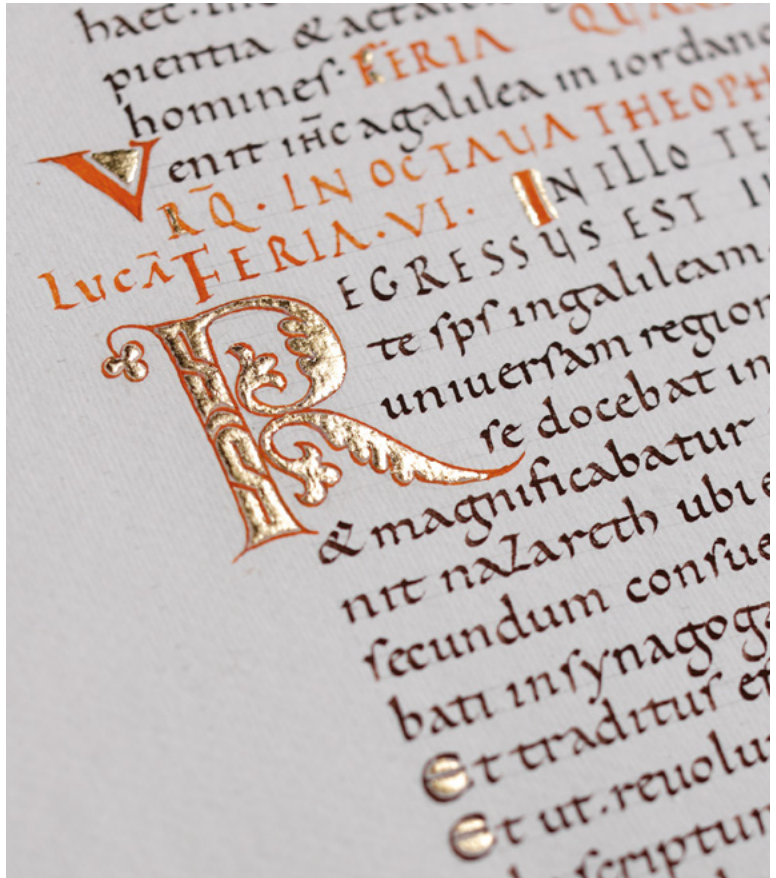 haec
pientia & aetate
homines. FERIA QUAR
Venit ih̄c agalilea in iordane
R̄Q. IN OCTAUA THEOPH
LUCĀ FERIA. VI. IN ILLO TE
REGRESSUS EST I
te sps ingalileam
uniuersam region
se docebat in
& magnificabatur
nit nazareth ubi e
secundum consue
bati insynagoga
Et traditus es
Et ut reuolu
scriptum